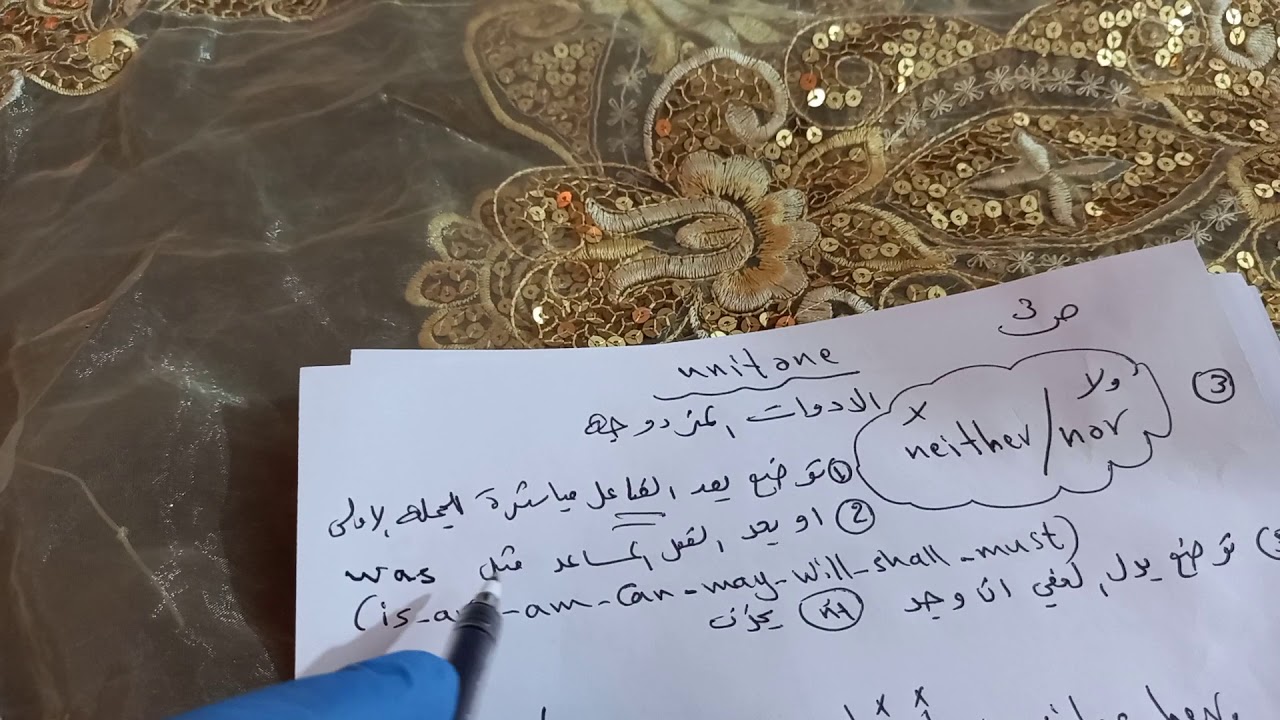 ص 3
unitone
الادوات المزدوجه
③ neither/nor ولا x
① توضع بعد الفاعل مباشرة الجمله الاولى
② او بعد الفعل المساعد مثل was
(is - - am - can - may - will - shall - must)
توضع بدل النفي ان وجد not يحذف